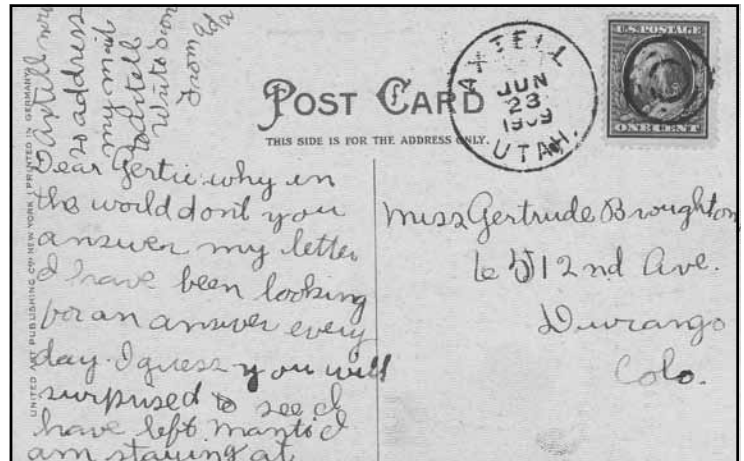 Axtell
so address
my mail
to Axtell
Write soon
From Ada
POST CARD
THIS SIDE IS FOR THE ADDRESS ONLY.
AXTELL
JUN
23
1909
UTAH.
U.S. POSTAGE
ONE CENT
UNITED ART PUBLISHING CO. NEW YORK (PRINTED IN GERMANY)
Dear Gertie: why in
the world don't you
answer my letter
I have been looking
for an answer every
day. I guess you will
surprised to see I
have left Manti I
am staying at
Miss Gertrude Broughton,
2nd Ave.
Durango
Colo.